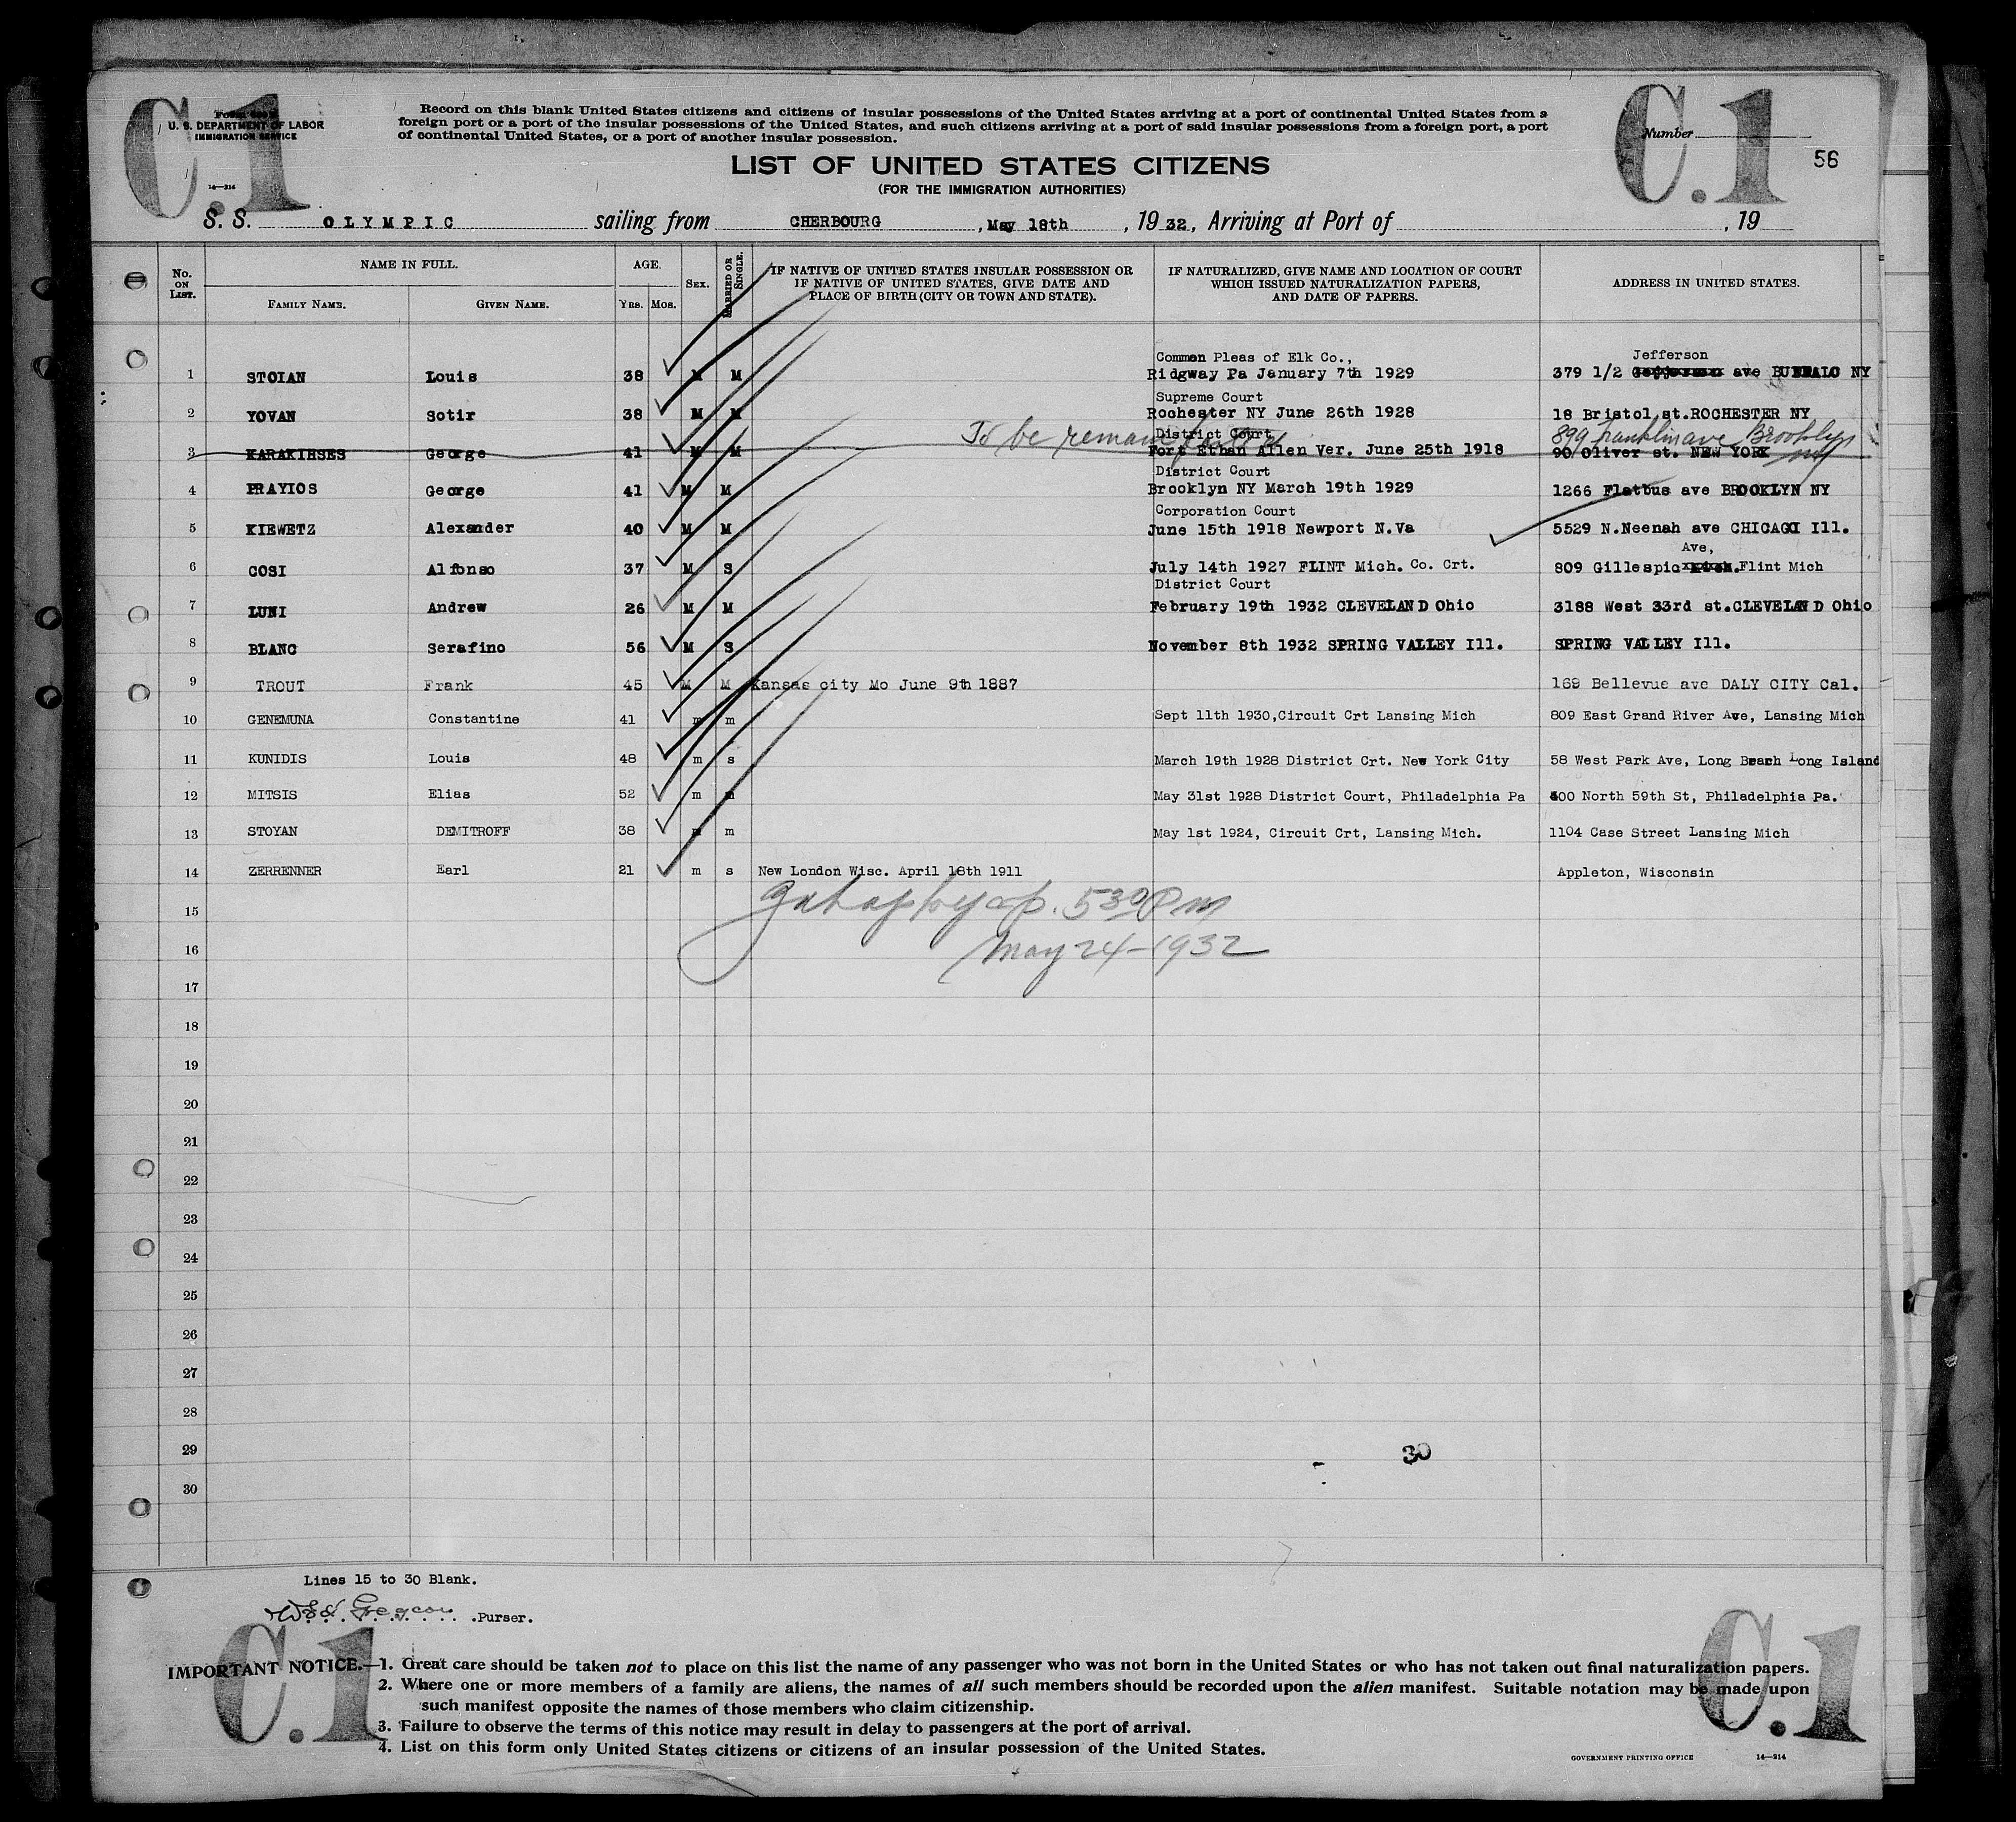 C.1
Form
U. S. DEPARTMENT OF LABOR
IMMIGRATION SERVICE
14—214
Record on this blank United States citizens and citizens of insular possessions of the United States arriving at a port of continental United States from a
foreign port or a port of the insular possessions of the United States, and such citizens arriving at a port of said insular possessions from a foreign port, a port
of continental United States, or a port of another insular possession.
C.1
Number
56
LIST OF UNITED STATES CITIZENS
(FOR THE IMMIGRATION AUTHORITIES)
S. S. OLYMPIC sailing from CHERBOURG, May 18th, 1932, Arriving at Port of , 19
No. ON LIST. NAME IN FULL. FAMILY NAME. GIVEN NAME. AGE. YRS. MOS. SEX. MARRIED OR SINGLE. IF NATIVE OF UNITED STATES INSULAR POSSESSION OR IF NATIVE OF UNITED STATES, GIVE DATE AND PLACE OF BIRTH (CITY OR TOWN AND STATE). IF NATURALIZED, GIVE NAME AND LOCATION OF COURT WHICH ISSUED NATURALIZATION PAPERS, AND DATE OF PAPERS. ADDRESS IN UNITED STATES.
Common Pleas of Elk Co., Jefferson
1 STOIAN Louis 38 M M Ridgway Pa January 7th 1929 379 1/2 ave BUFFALO NY
Supreme Court
2 YOVAN Sotir 38 M M Rochester NY June 26th 1928 18 Bristol st.ROCHESTER NY
To be District Court 899 Franklin ave Brooklyn
3 KARAKIHSES George 41 M M Fort Ethan Allen Ver. June 25th 1918 90 Oliver st. NEW YORK
District Court
4 PRAYIOS George 41 M M Brooklyn NY March 19th 1929 1266 Flatbus ave BROOKLYN NY
Corporation Court
5 KIEWETZ Alexander 40 M M June 15th 1918 Newport N.Va 5529 N.Neenah ave CHICAGO Ill.
Ave,
6 COSI Alfonso 37 M S July 14th 1927 FLINT Mich. Co. Crt. 809 Gillespic Flint Mich
District Court
7 LUNI Andrew 26 M M February 19th 1932 CLEVELAND Ohio 3188 West 33rd st.CLEVELAND Ohio
8 BLANC Serafino 56 M S November 8th 1932 SPRING VALLEY Ill. SPRING VALLEY Ill.
9 TROUT Frank 45 M M Kansas city Mo June 9th 1887 169 Bellevue ave DALY CITY Cal.
10 GENEMUNA Constantine 41 m m Sept 11th 1930,Circuit Crt Lansing Mich 809 East Grand River Ave, Lansing Mich
11 KUNIDIS Louis 48 m s March 19th 1928 District Crt. New York City 58 West Park Ave, Long Beach Long Island
12 MITSIS Elias 52 m m May 31st 1928 District Court, Philadelphia Pa 400 North 59th St, Philadelphia Pa.
13 STOYAN DEMITROFF 38 m m May 1st 1924, Circuit Crt, Lansing Mich. 1104 Case Street Lansing Mich
14 ZERRENNER Earl 21 m s New London Wisc. April 18th 1911 Appleton, Wisconsin
15 530 Pm
16 May 24-1932
17
18
19
20
21
22
23
24
25
26
27
28
29 30
30
Lines 15 to 30 Blank.
Purser.
C.1
C.1
IMPORTANT NOTICE.—1. Great care should be taken not to place on this list the name of any passenger who was not born in the United States or who has not taken out final naturalization papers.
2. Where one or more members of a family are aliens, the names of all such members should be recorded upon the alien manifest. Suitable notation may be made upon
such manifest opposite the names of those members who claim citizenship.
3. Failure to observe the terms of this notice may result in delay to passengers at the port of arrival.
4. List on this form only United States citizens or citizens of an insular possession of the United States.
GOVERNMENT PRINTING OFFICE 14—214